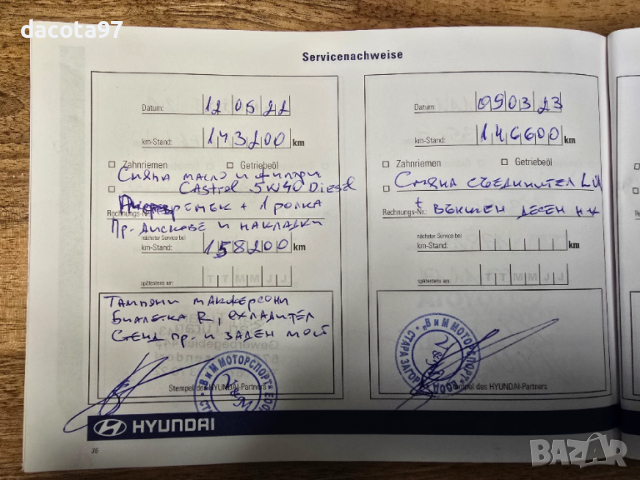 dacota97
Servicenachweise
Datum: 12 05 22
km-Stand: 143200 km
Zahnriemen Getriebeöl
Смяна масло и филтри
Castrol 5W40 Diesel
ремък + 1 ролка
Rechnungs-Nr.
Пр. дискове и накладки
nächster Service bei
km-Stand: 158200 km
spätestens am: L L M M T T
Тампони макферсони
Биалетка R, охладител
Стенд пр. и заден мост
"В и М МОТОРСПОРТ" ЕООД
Stempel des HYUNDAI-Partners
HYUNDAI
26
Datum: 09 03 23
km-Stand: 146600 km
Zahnriemen Getriebeöl
Смяна съединител LUK
Rechnungs-Nr.
+ външен десен
nächster Service bei
km-Stand: km
spätestens am: L L M M T T
"В и М МОТОРСПОРТ" ЕООД
СТАРА ЗАГОРА
Stempel des HYUNDAI-Partners
BAZAR
bg